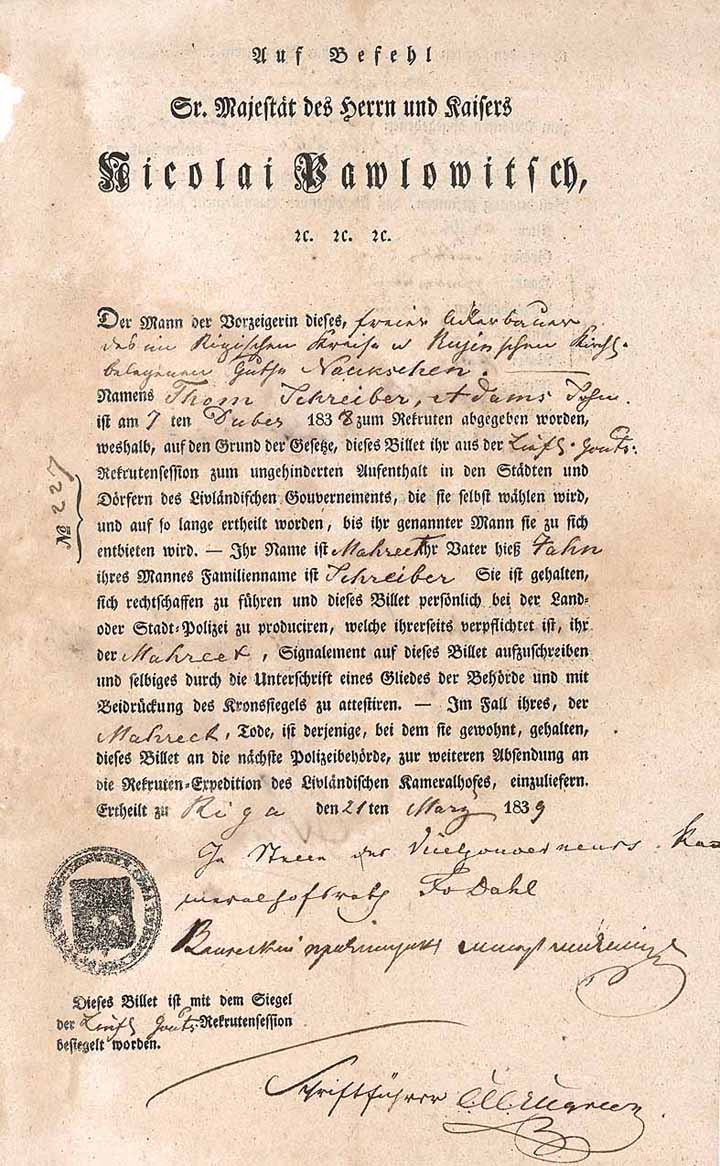 Auf Befehl
Sr. Majestät des Herrn und Kaisers
Nicolai Pawlowitsch,
ꝛc. ꝛc. ꝛc.
Der Mann der Vorzeigerin dieses, freier Ackerbauer
des im Rigischen Kreise u Rujenschen Kirchs.
belegenen Guths Naukschen.
Namens Thom Schreiber, Adams Sohn
ist am 7 ten Dubr 1838 zum Rekruten abgegeben worden,
weshalb, auf den Grund der Gesetze, dieses Billet ihr aus der Livfl. Gouts.
Rekrutensession zum ungehinderten Aufenthalt in den Städten und
Dörfern des Livländischen Gouvernements, die sie selbst wählen wird,
№ 227
und auf so lange ertheilt worden, bis ihr genannter Mann sie zu sich
entbieten wird. — Ihr Name ist Mahreet Ihr Vater hieß Jahn
ihres Mannes Familienname ist Schreiber Sie ist gehalten,
sich rechtschaffen zu führen und dieses Billet persönlich bei der Land-
oder Stadt-Polizei zu produciren, welche ihrerseits verpflichtet ist, ihr
der Mahreet, Signalement auf dieses Billet aufzuschreiben
und selbiges durch die Unterschrift eines Gliedes der Behörde und mit
Beidrückung des Kronssiegels zu attestiren. — Im Fall ihres, der
Mahreet, Tode, ist derjenige, bei dem sie gewohnt, gehalten,
dieses Billet an die nächste Polizeibehörde, zur weiteren Absendung an
die Rekruten-Expedition des Livländischen Kameralhofes, einzuliefern.
Ertheilt zu Riga den 21 ten März 1839
In Stelle des Vicegouverneurs. Ka-
meralhofsrath Dahl
Dieses Billet ist mit dem Siegel
der Livfl Gouts Rekrutensession
besiegelt worden.
Schriftführer